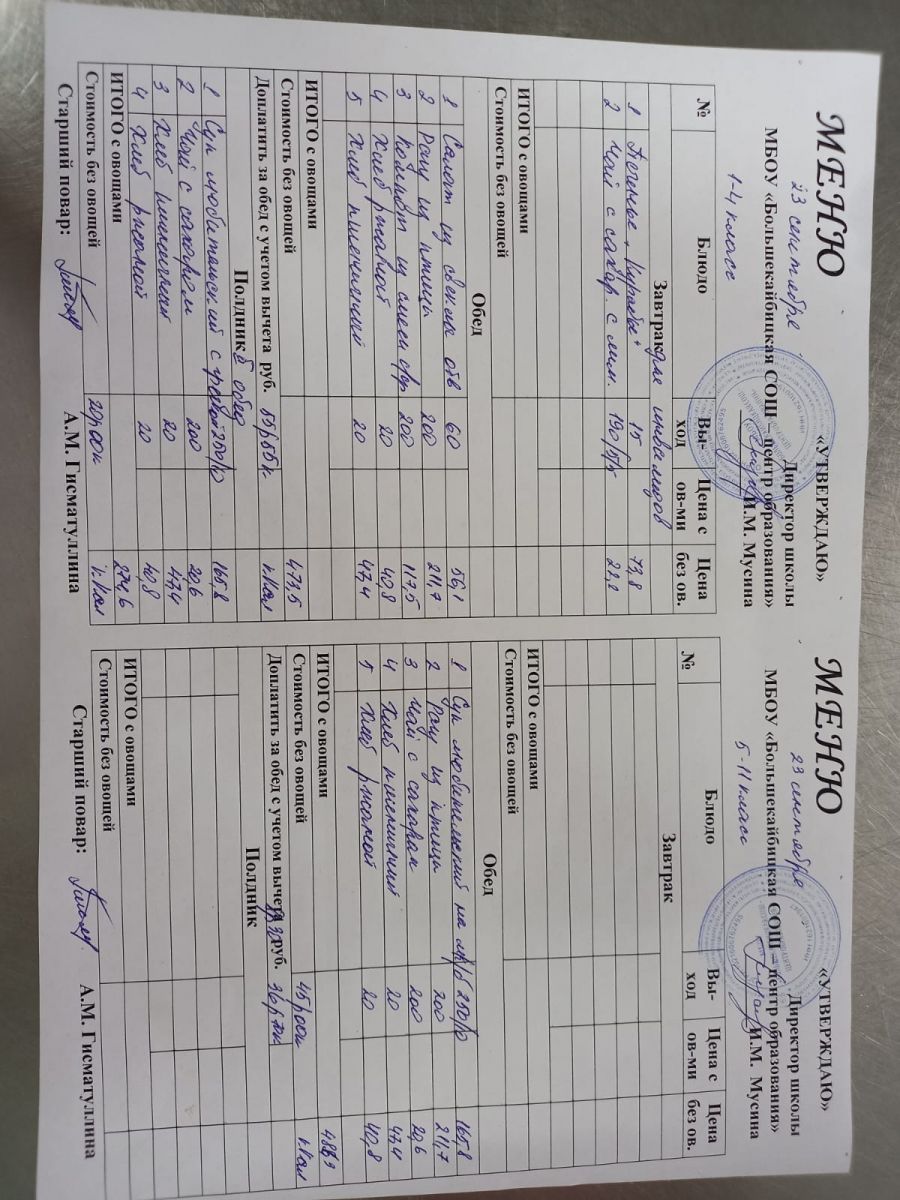 МЕНЮ
«УТВЕРЖДАЮ»
Директор школы
23 сентября
МБОУ «Большекайбицкая СОШ – центр образования»
И.М. Мусина
1-4 класс
№ Блюдо Вы-ход Цена с ов-ми Цена без ов.
Завтрак для инвалидов
1 Печенье "Курабье" 15 73,8
2 Чай с сахар. с лим. 190/5/5 22,8
ИТОГО с овощами
Стоимость без овощей
Обед
1 Салат из свеклы отв 60 56,1
2 Рагу из птицы 200 211,7
3 Компот из смеси с/ф 200 117,5
4 Хлеб ржаной 20 40,8
5 Хлеб пшеничный 20 47,4
ИТОГО с овощами 473,5
Стоимость без овощей ккал
Доплатить за обед с учетом вычета руб.
Полдник обед
1 Суп любительский с 250/10 165,8
2 Чай с сахаром 200 20,6
3 Хлеб пшеничный 20 47,4
4 Хлеб ржаной 20 40,8
ИТОГО с овощами 274,6
Стоимость без овощей 20р00к ккал
Старший повар: А.М. Гисматуллина
МЕНЮ
«УТВЕРЖДАЮ»
Директор школы
23 сентября
МБОУ «Большекайбицкая СОШ – центр образования»
И.М. Мусина
5-11 класс
№ Блюдо Вы-ход Цена с ов-ми Цена без ов.
Завтрак
ИТОГО с овощами
Стоимость без овощей
Обед
1 Суп любительский на м/б 250/10 165,8
2 Рагу из птицы 200 211,7
3 Чай с сахаром 200 20,6
4 Хлеб пшеничный 20 47,4
5 Хлеб ржаной 20 40,8
ИТОГО с овощами
Стоимость без овощей 45р00к ккал
Доплатить за обед с учетом вычета руб.
Полдник
ИТОГО с овощами
Стоимость без овощей
Старший повар: А.М. Гисматуллина